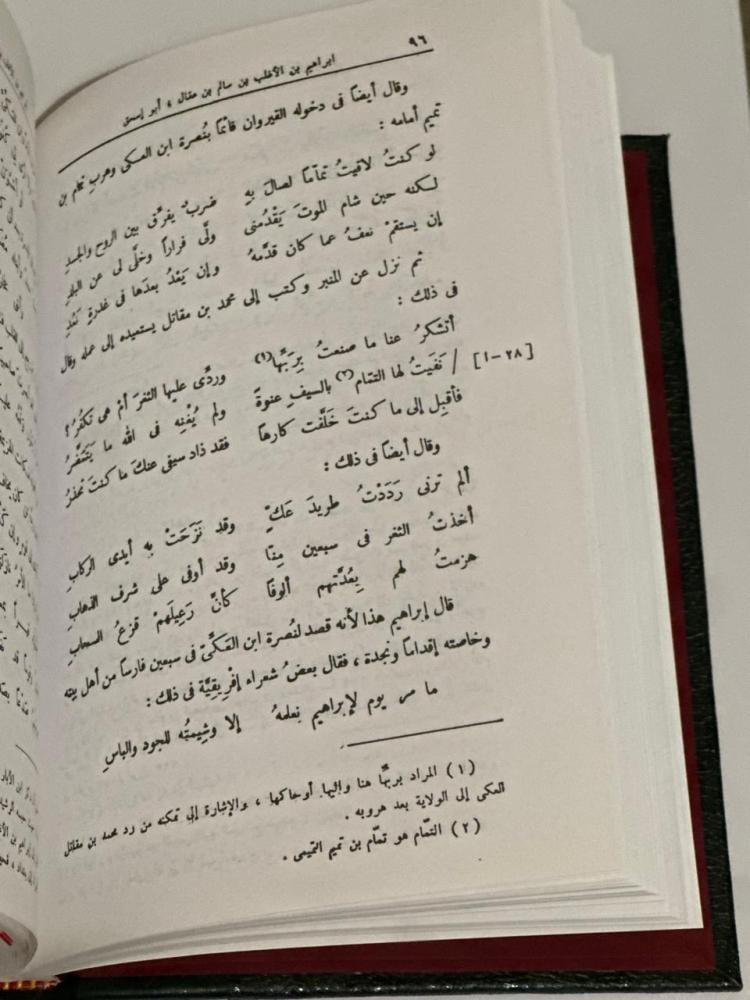 ٩٦
ابراهيم بن الأغلب بن سالم بن عقال ، أبو إسحق
وقال أيضاً فى دخوله القيروان قائمًا بنُصرة ابن العكى وهربِ تمام بن
تميم أمامه :
لو كنتُ لاقيتُ تمّامًا لصالَ بِهِ ضربٌ يفرِّق بين الروح والجسدِ
لكنه حين شام الموتَ يَقْدُمنى ولَّى فراراً وخلَّى لى عن البلدِ
إن يستقمْ نعفُ عما كان قدَّمهُ وإن يَعُدْ بعدَها فى غدرةٍ نَعُدِ
ثم نزل عن المنبر وكتب إلى محمد بن مقاتل يستعيده إلى عمله وقال
فى ذلك :
أتشكرُ عنا ما صنعتُ بِرَبِّها(١) وردِّى عليها الثغرَ أمْ هى تكفُرُ؟
[٢٨-ا] / نَفَيتُ لها التمّام(٢) بالسيفِ عنوةً ولم يُغْنِه فى الله ما يَتَنَظَّرُ
فأقبِل إلى ما كنتَ خَلَّفت كارهًا فقد ذاد سيفى عنكَ ما كنتَ تحذرُ
وقال أيضاً فى ذلك :
ألم ترنى رَدَدْتُ طريدَ عَكٍّ وقد نَزَحَتْ به أيدى الركابِ
أخذتُ الثغر فى سبعين مِنّا وقد أوفى على شرف الذهابِ
هزمتُ لهم بِعُدَّتهم ألوفًا كأنَّ رَعِيلَهمْ قزعُ السحابِ
قال إبراهيم هذا لأنه قصد لنُصرة ابن العَكِّىّ فى سبعين فارساً من أهل بيته
وخاصته إقداماً ونجدة ، فقال بعضُ شعراء إفْرِيقِيَّة فى ذلك :
ما مر يوم لإبراهيم نعلمهُ إلا وشِيمتُه للجود والباسِ
(١) المراد بربّها هنا واليها أو حاكمها ، والإشارة إلى تمكنه من رد محمد بن مقاتل
العكى إلى الولاية بعد هروبه .
(٢) التمّام هو تمّام بن تميم التميمى .